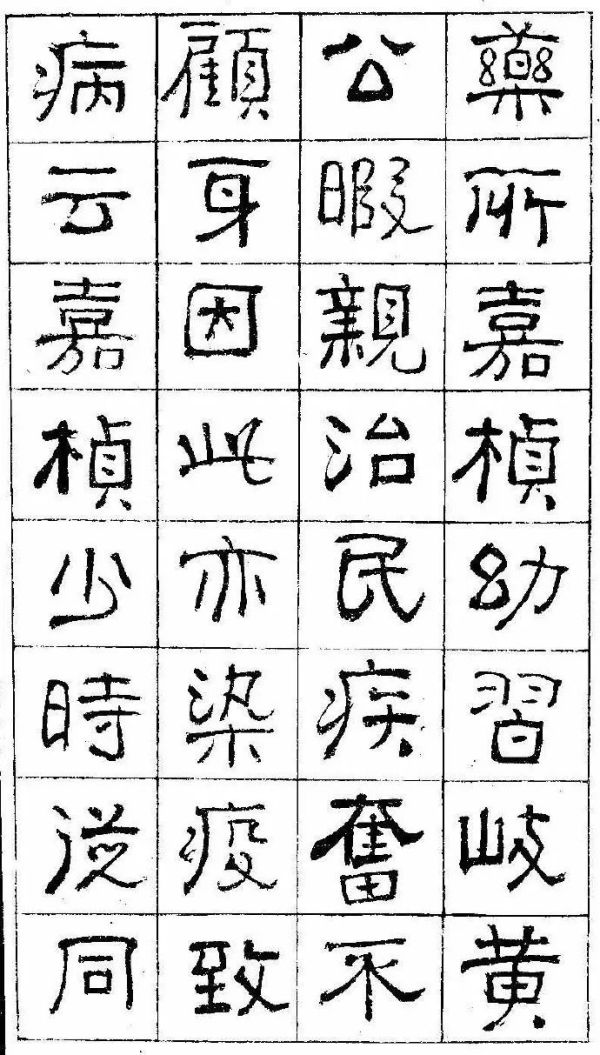 藥所嘉楨幼習岐黃
公暇親治民疾奮不
顧身因此亦染疫致
病云嘉楨少時從同